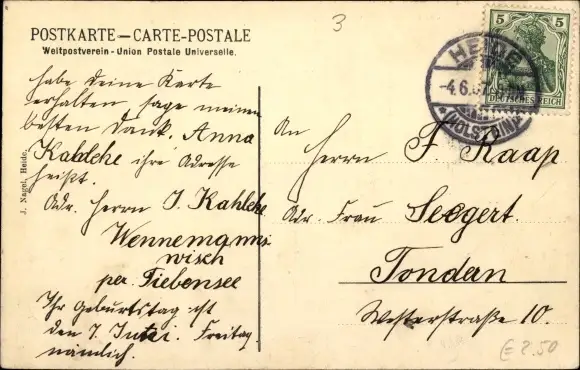 3
POSTKARTE – CARTE-POSTALE
Weltpostverein - Union Postale Universelle.
5 5
DEUTSCHES REICH
HEIDE
-4.6.07
(HOLSTEIN)
J. Nagel, Heide.
habe deine Karte
erhalten, sage meinen
besten Dank. Anna
Kahlcke ihre Adresse
heißt.
Adr. Herrn J. Kahlcke
Wennemanns
wisch
per Tiebensee
Ihr Geburtstag ist
den 7. Juni. Freitag
nämlich.
An
Herrn F. Raap
Adr. Frau Seegert.
Tondern
Westerstraße 10.
€ 2.50